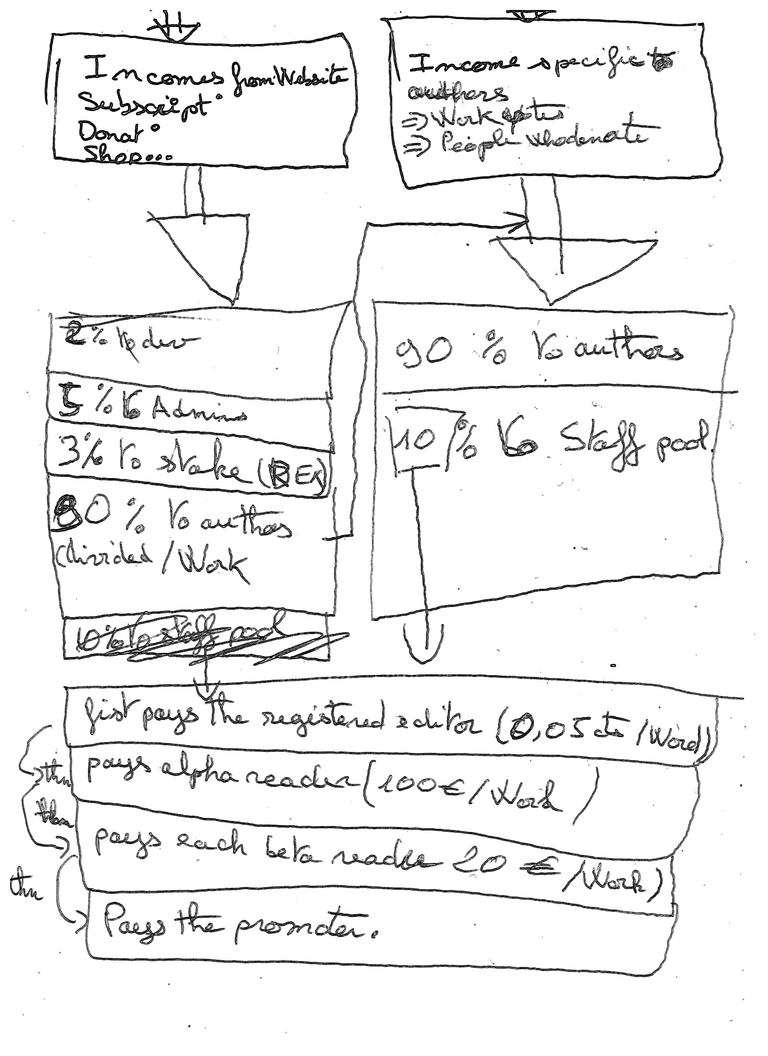 Incomes from Website
Subscript°
Donat°
Shop...
Income specific to
authors
=> Work
=> People who donate
2% to dev
5% to Admins
3% to stake (BEx)
80% to authors
(divided / Work
10% to staff pool
90 % to authors
10 % to Staff pool
first pays the registered editor (0,05 cts / Word)
then
pays alpha reader (100€ / Work)
then
pays each beta reader 20 € / Work)
then
Pays the promoter.